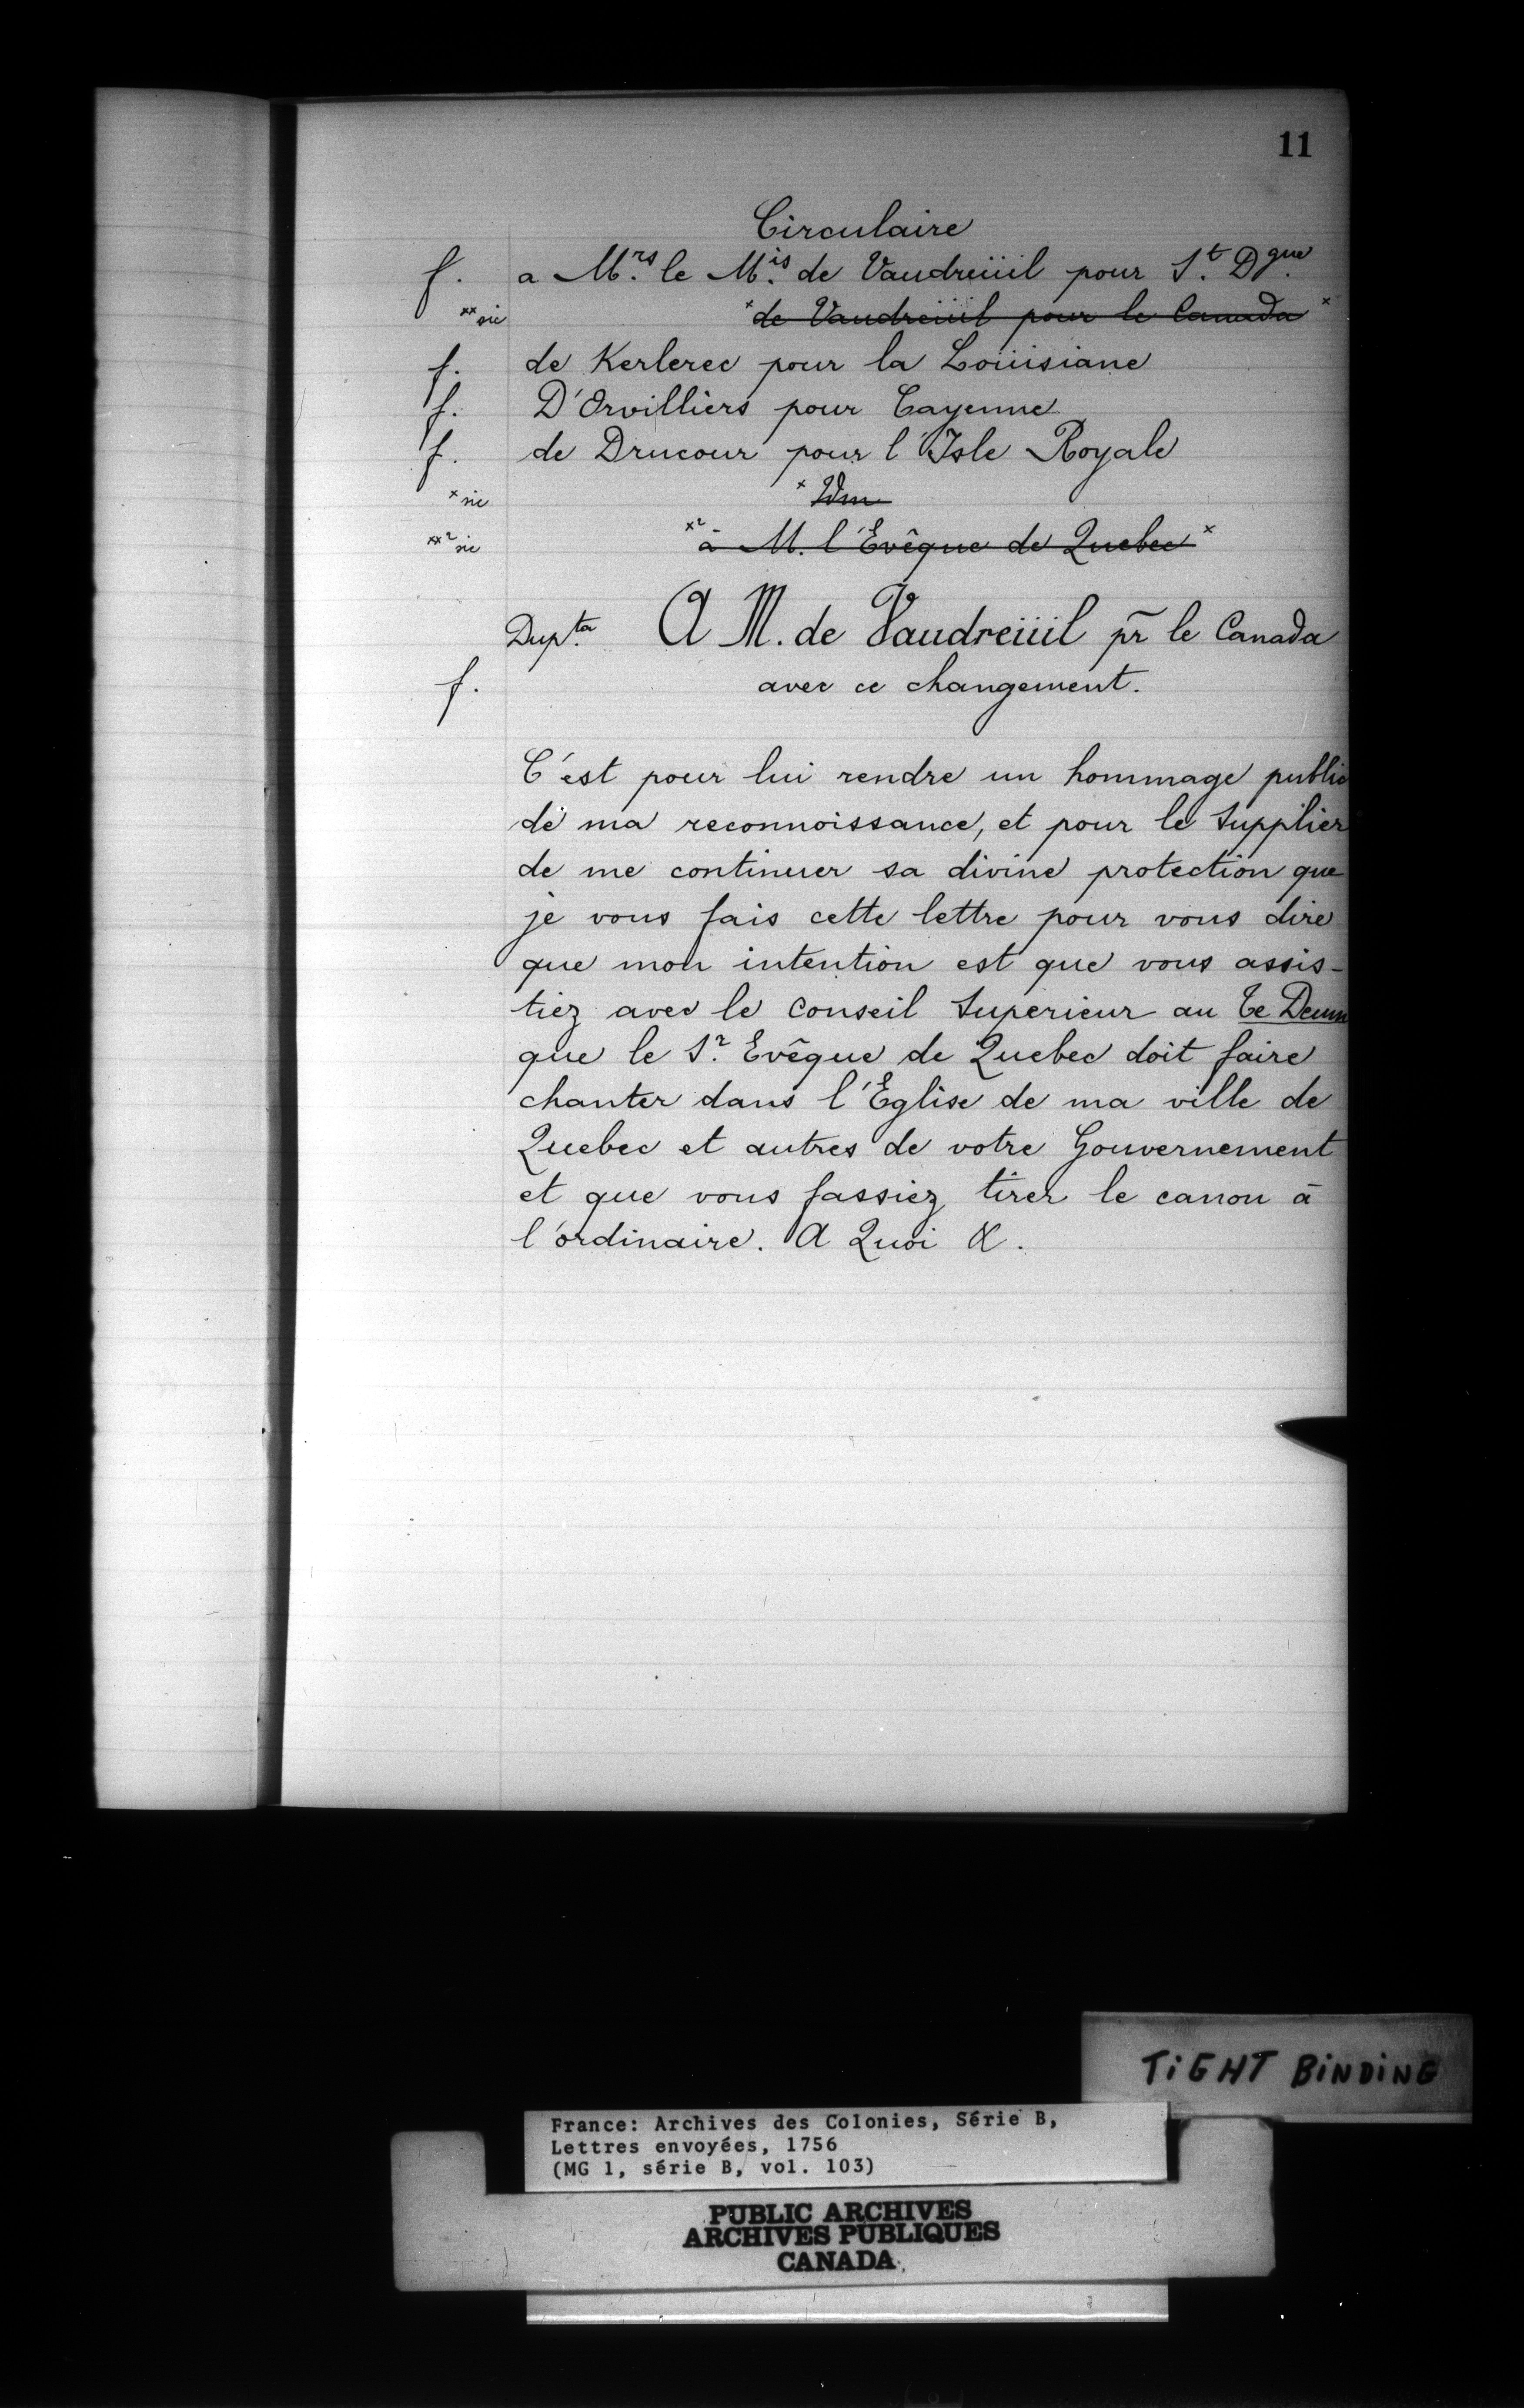 11
Circulaire
f. a M.rs le M.is de Vaudreüil pour S.t D.gue
**sic *de Vaudreüil pour le Canada*
f. de Kerlerec pour la Loüisiane
f. D'Orvilliers pour Cayenne
f. de Drucour pour l'Isle Royale
*sic *Idm
**2 sic *2 à M. l'Evêque de Quebec*
Dup.ta A M. de Vaudreüil pr le Canada
f. avec ce changement.
C'est pour lui rendre un hommage public
de ma reconnoissance, et pour le Supplier
de me continuer sa divine protection que
je vous fais cette lettre pour vous dire
que mon intention est que vous assis-
tiez avec le Conseil Superieur au Te Deum
que le S.r Evêque de Quebec doit faire
chanter dans l'Eglise de ma ville de
Quebec et autres de votre Gouvernement
et que vous fassiez tirer le canon à
l'ordinaire. A Quoi &.
TiGHT BiNDiNG
France: Archives des Colonies, Série B,
Lettres envoyées, 1756
(MG 1, série B, vol. 103)
PUBLIC ARCHIVES
ARCHIVES PUBLIQUES
CANADA